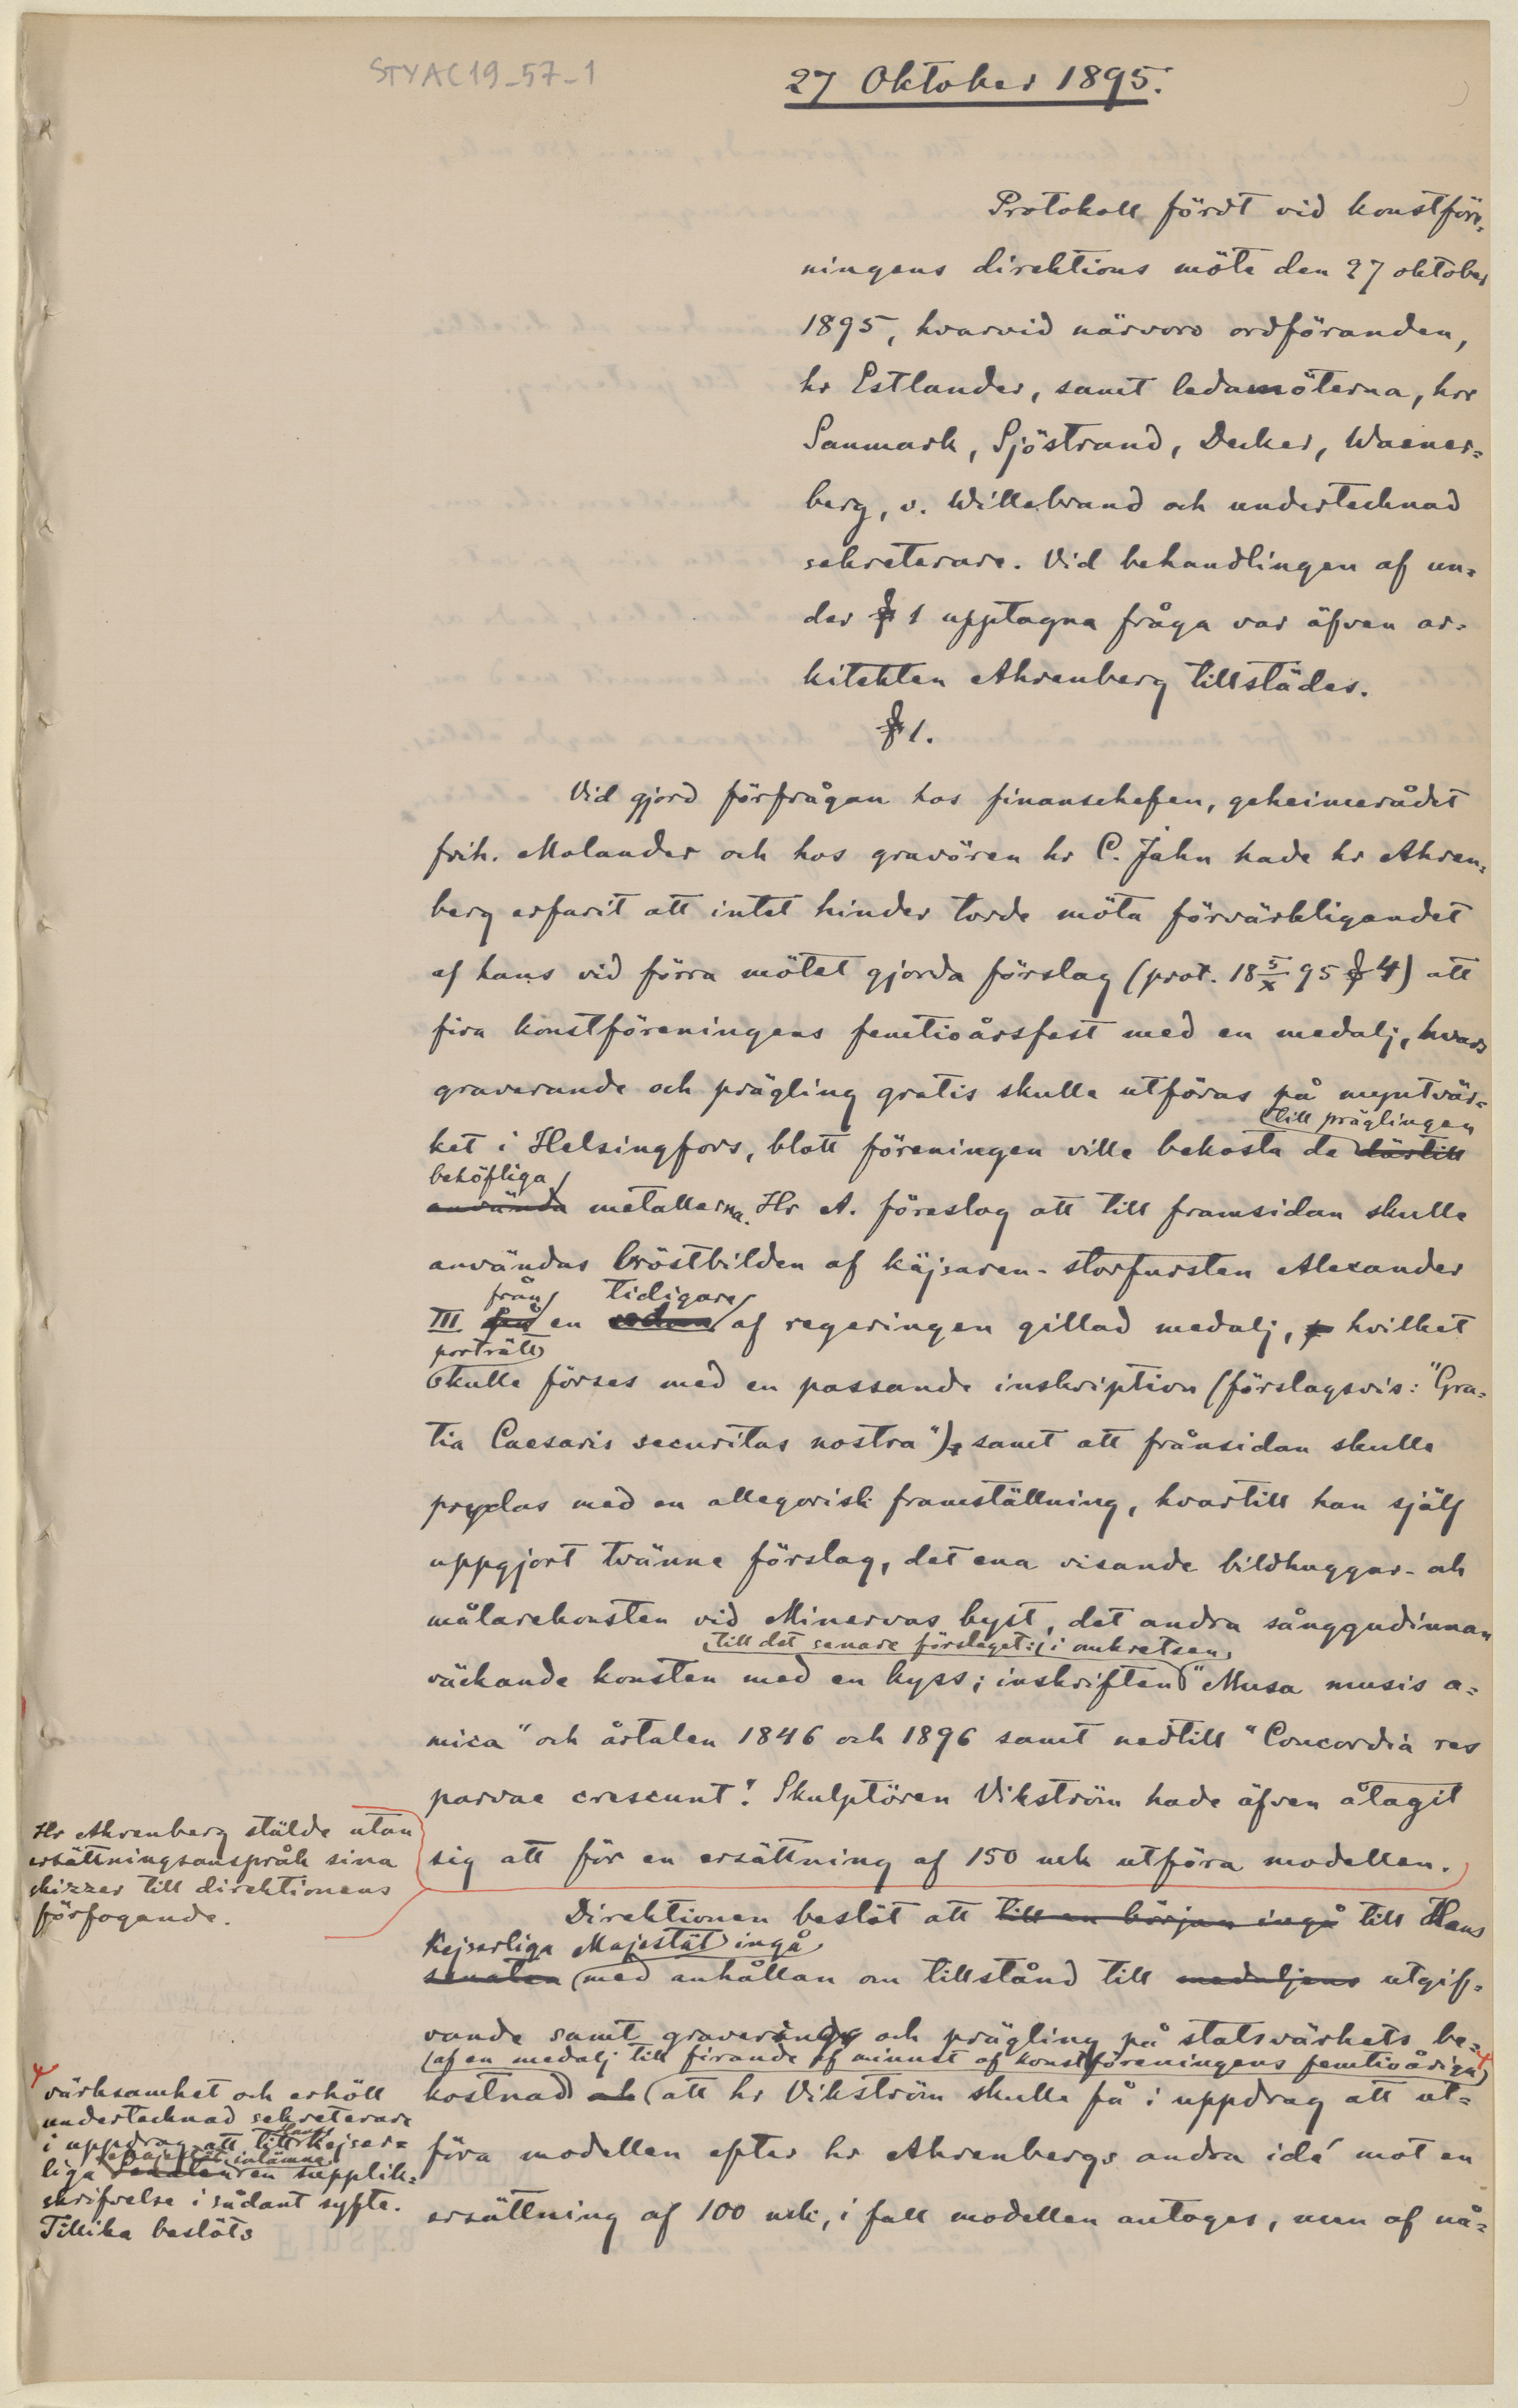 STYAC19_57_1
27 Oktober 1895.
Protokoll fördt vid konstföre-
ningens direktions möte den 27 oktober
1895, hvarvid närvoro ordföranden,
hr Estlander, samt ledamöterna, hrr
Sanmark, Sjöstrand, Decker, Waener-
berg, v. Willebrand och undertecknad
sekreterare. Vid behandlingen af un-
der § 1 upptagna fråga var äfven ar-
kitekten Ahrenberg tillstädes.
§ 1.
Vid gjord förfrågan hos finanschefen, geheimerådet
frih. Molander och hos gravören hr C. Jahn hade hr Ahren-
berg erfarit att intet hinder torde möta förvärkligandet
af hans vid förra mötet gjorda förslag (prot. 18 5/X 95 § 4) att
fira konstföreningens femtioårsfest med en medalj, hvars
graverande och prägling gratis skulle utföras på myntvär-
till präglingen
ket i Helsingfors, blott föreningen ville bekosta de därtill
behöfliga
använda metallerna. Hr A. föreslog att till framsidan skulle
användas bröstbilden af käjsaren-storfursten Alexander
från tidigare
III på en redan af regeringen gillad medalj, hvilket
porträtt
skulle förses med en passande inskription (förslagsvis: "Gra-
tia Caesaris securitas nostra"), samt att frånsidan skulle
prydas med en allegorisk framställning, hvartill han själf
uppgjort tvänne förslag, det ena visande bildhuggar- och
målarekonsten vid Minervas byst, det andra sånggudinnan
till det senare förslaget: i omkretsen,
väckande konsten med en kyss; inskriften "Musa musis a-
mica" och årtalen 1846 och 1896 samt nedtill "Concordia res
parvae crescunt". Skulptören Vikström hade äfven åtagit
sig att för en ersättning af 150 mk utföra modellen.
Hr Ahrenberg stälde utan
ersättningsanspråk sina
skizzer till direktionens
förfogande.
Direktionen beslöt att till en början ingå till Hans
Kejserliga Majestät ingå
senaten med anhållan om tillstånd till medaljens utgif-
vande samt graverings och prägling på statsvärkets be-
af en medalj till firande af minnet af konstföreningens femtioåriga
kostnad och att hr Vikström skulle få i uppdrag att ut-
föra modellen efter hr Ahrenbergs andra idé mot en
ersättning af 100 mk, i fall modellen antoges, men af nå-
värksamhet och erhöll
undertecknad sekreterare
i uppdrag att till Hans Kejser-
Majestät inlämna
liga senaten en supplik-
skrifvelse i sådant syfte.
Tillika beslöts